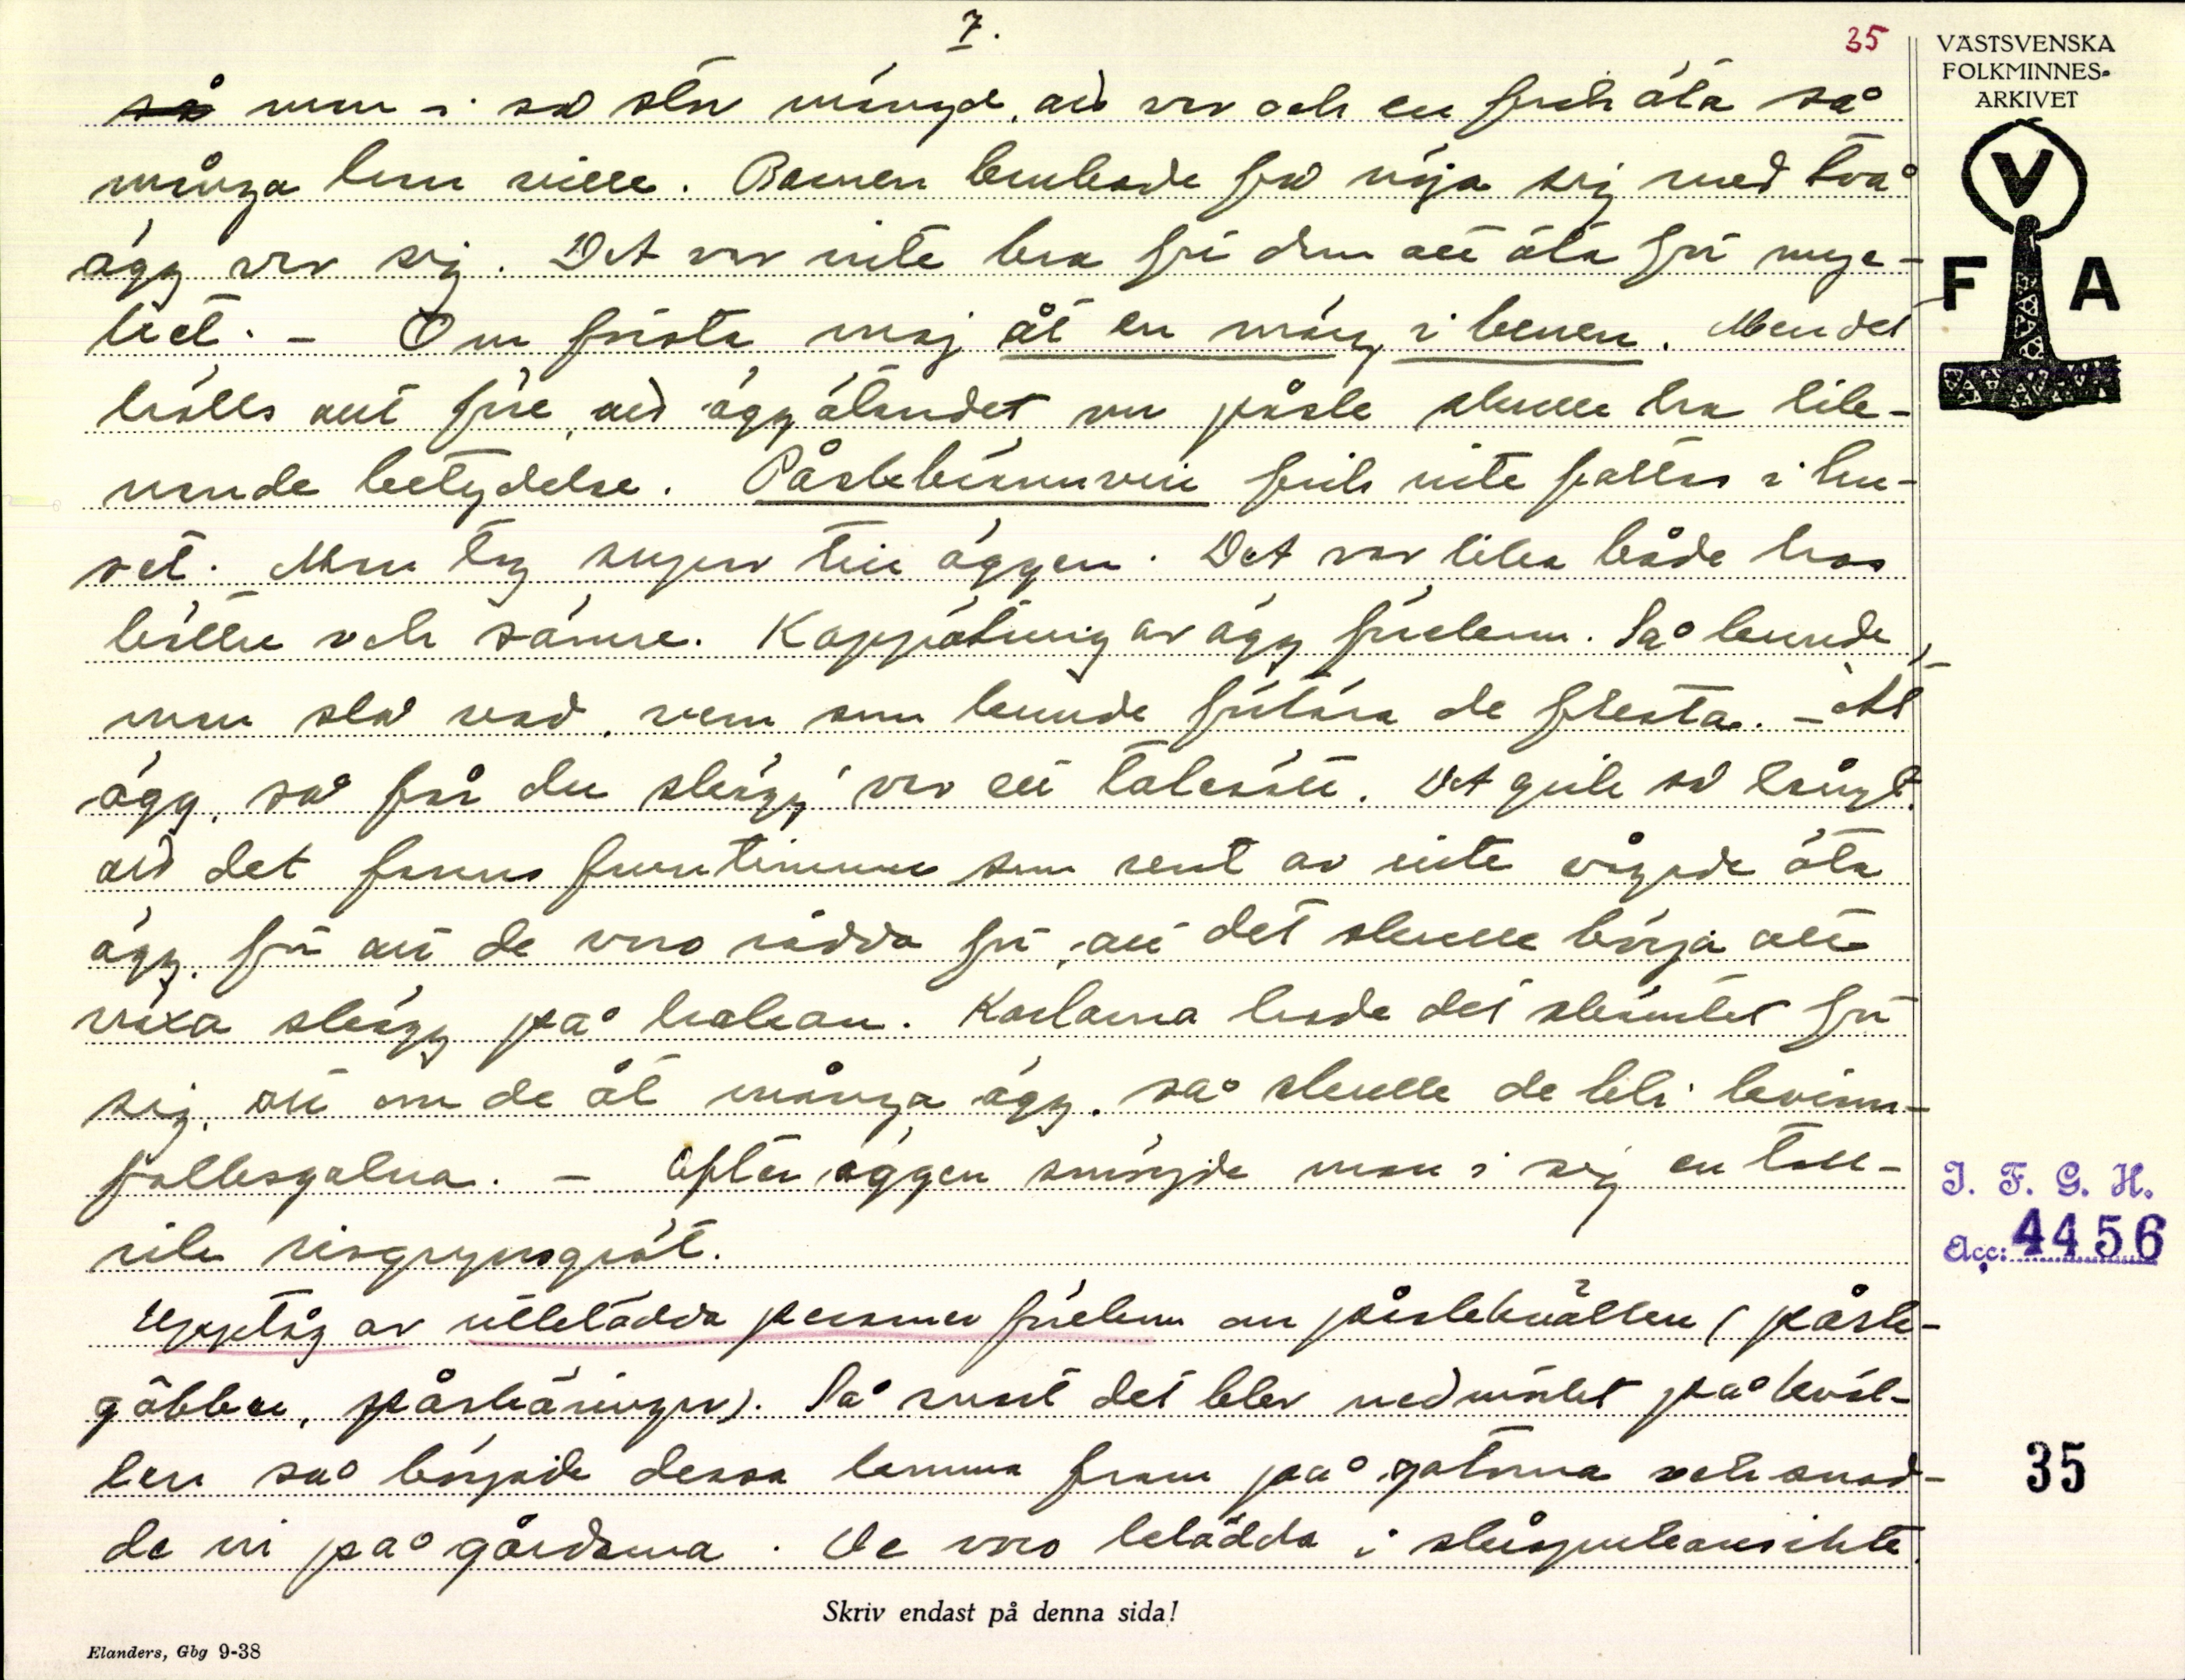 7.
35
VÄSTSVENSKA
FOLKMINNES-
ARKIVET
V
F A
man i så stor mängd, att var och en fick äta så
många han ville. Barnen brukade få nöja sig med två
ägg var sig. Det var inte bra för dem att äta för myc-
ket. - Om första maj åt en märg i benen. Men det
hölls nitt före, att äggätandet om påsk skulle ha lik-
nande betydelse. Påskbrännvin fick inte fattas i hu-
set. Man tog supar till äggen. Det var lika både hos
bättre och sämre. Kappätning av ägg förekom. Så kunde
man slå vad, vem som kunde förtära de flesta. - Ät
ägg, så får du skägg, var ett talesätt. Det gick så långt,
att det fanns fruntimmer som rent av inte vågade äta
ägg, för att de voro rädda för, att det skulle börja att
växa skägg på hakan. Karlarna hade det skämtet för
sig, att om de åt många ägg, så skulle de bli kvinn-
folksgalna. - Efter äggen smörjde man i sig en tall-
rik risgrynsgröt.
Upptåg av utklädda personer förekom om påskkvällen (påsk-
gubbar, påskkäringar). Så snart det blev nedmörket på kväl-
len så började dessa komma fram på gatorna och snad-
de in på gårdarna. De voro beklädda i skråpukansikte,
I. F. G. H.
Acc: 4456
35
Skriv endast på denna sida!
Elanders, Gbg 9-38